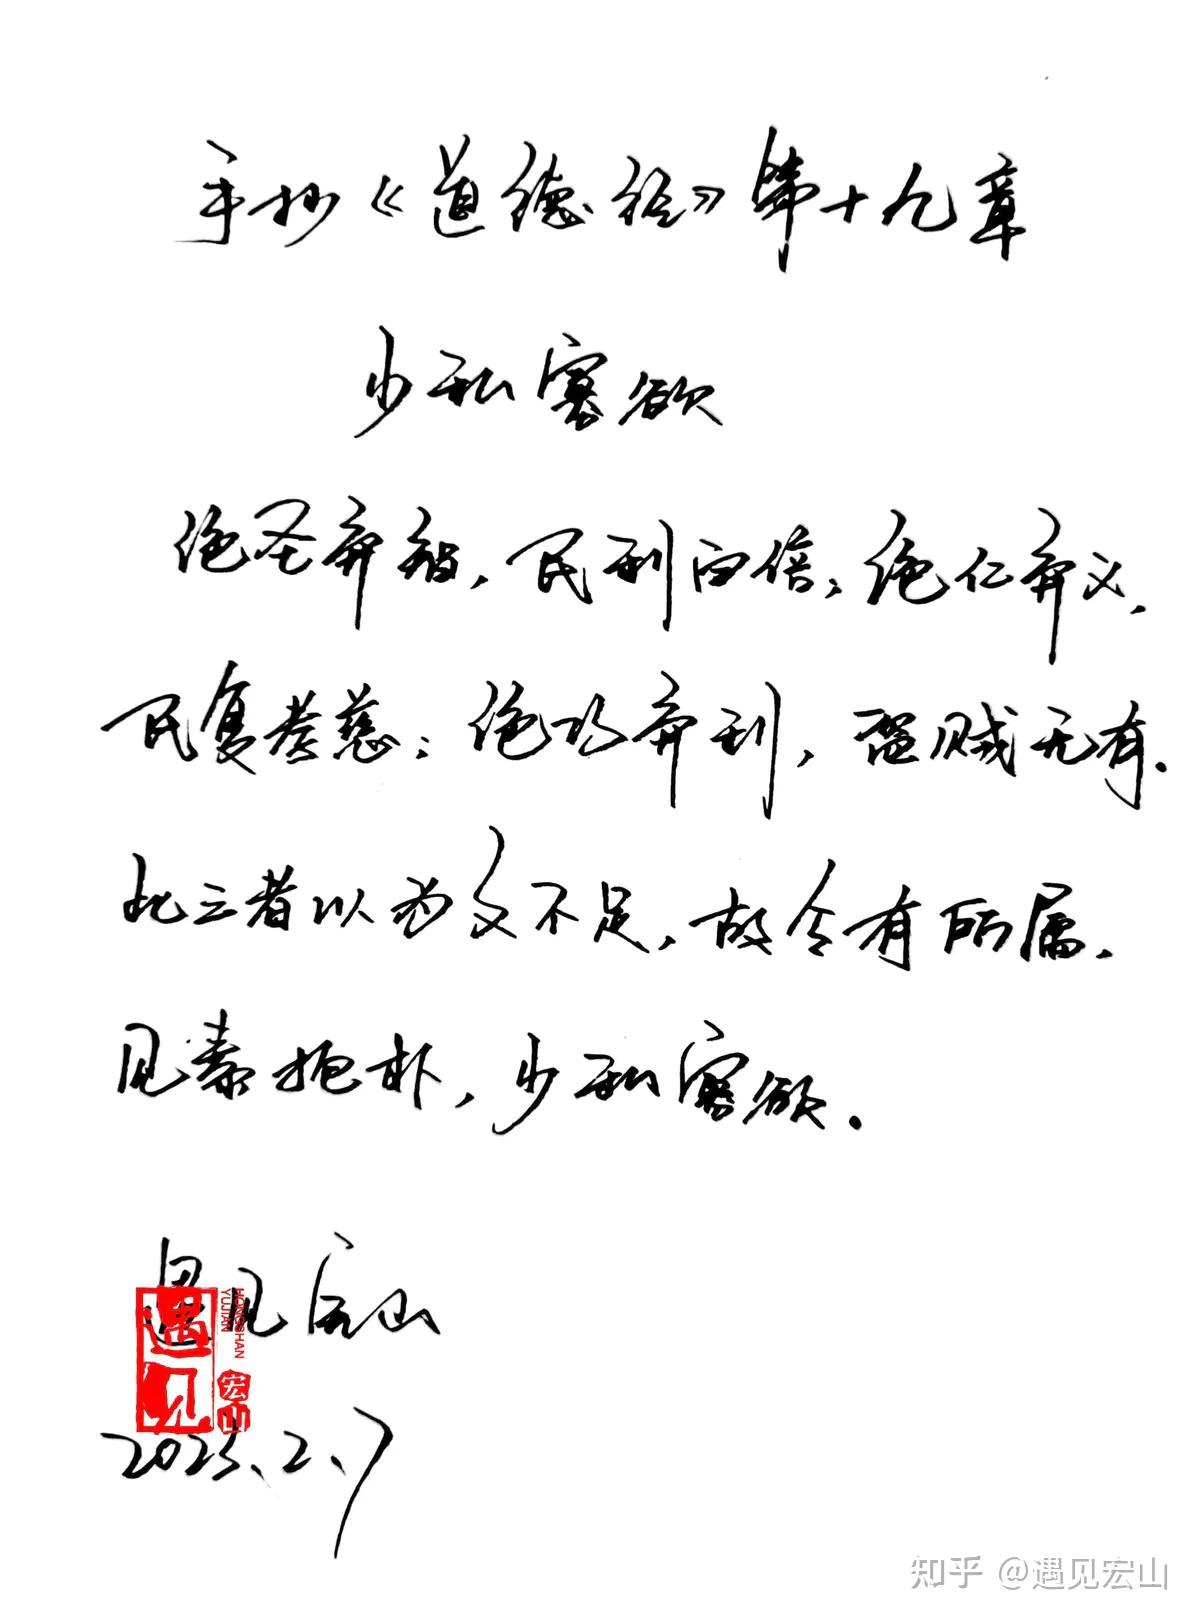 手抄《道德经》第十九章
少私寡欲
绝圣弃智，民利百倍；绝仁弃义，
民复孝慈；绝巧弃利，盗贼无有。
此三者以为文不足，故令有所属，
见素抱朴，少私寡欲。
遇见宏山
遇见
HONGSHAN
YUJIAN
宏山
2025.2.7
知乎 @遇见宏山